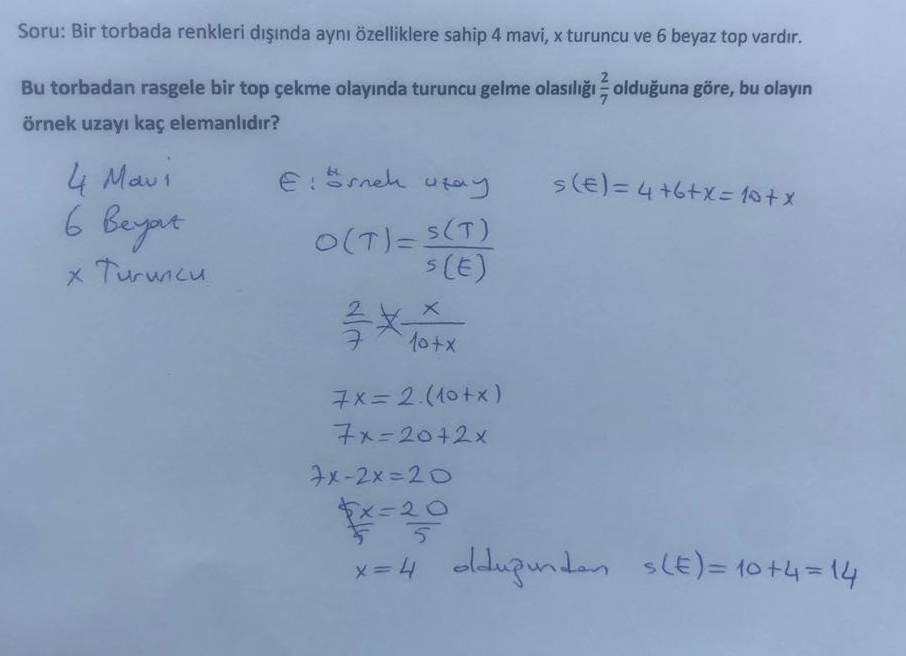 Soru: Bir torbada renkleri dışında aynı özelliklere sahip 4 mavi, x turuncu ve 6 beyaz top vardır.
Bu torbadan rasgele bir top çekme olayında turuncu gelme olasılığı 2/7 olduğuna göre, bu olayın
örnek uzayı kaç elemanlıdır?
4 Mavi
6 Beyaz
x Turuncu
E: örnek uzay
s(E) = 4+6+x = 10+x
O(T) = s(T)/s(E)
2/7 = x/10+x
7x = 2.(10+x)
7x = 20+2x
7x-2x = 20
5x/5 = 20/5
x = 4 olduğundan s(E) = 10+4 = 14